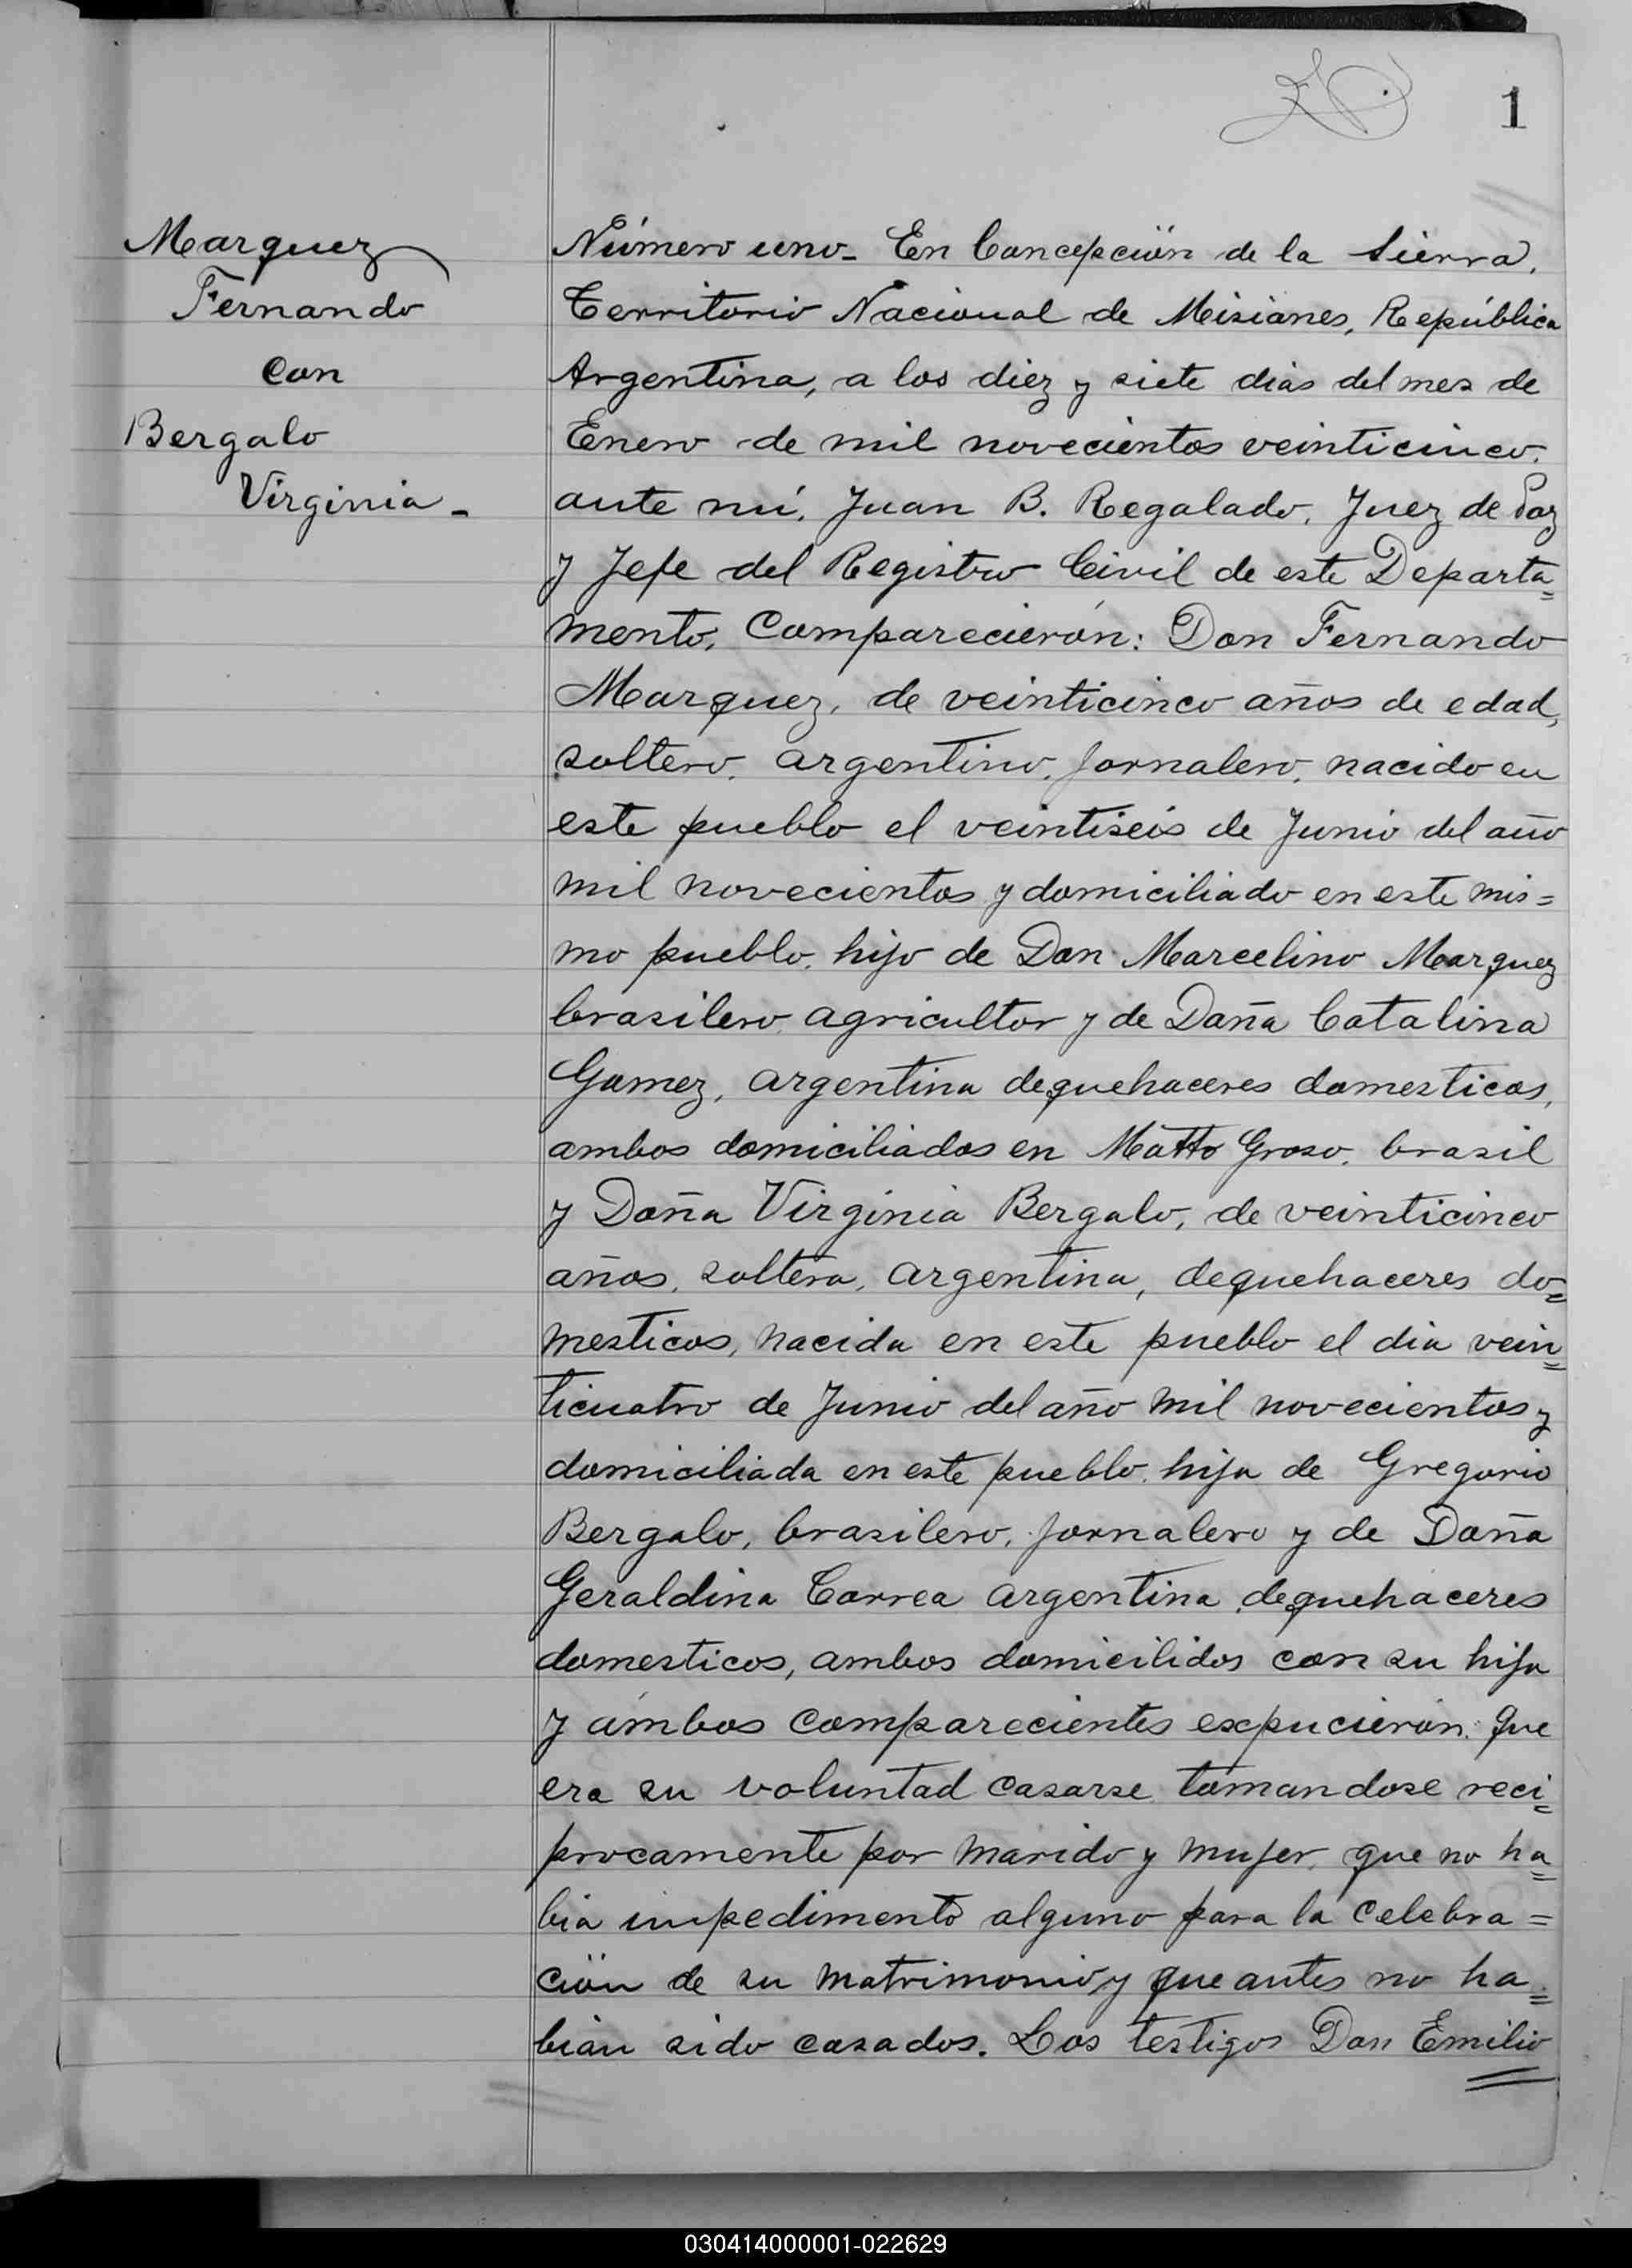 1
Marquez
Fernando
con
Bergalo
Virginia -
Número uno - En Concepción de la Sierra,
Territorio Nacional de Misiones, República
Argentina, a los diez y siete dias del mes de
Enero de mil novecientos veinticinco.
ante mí, Juan B. Regalado, Juez de Paz
y Jefe del Registro Civil de este Departa=
mento, Comparecierón: Don Fernando
Marquez, de veinticinco años de edad,
soltero, argentino, jornalero, nacido en
este pueblo el veintiseis de Junio del año
mil novecientos y domiciliado en este mis=
mo pueblo, hijo de Don Marcelino Marquez
brasilero, agricultor y de Doña Catalina
Gomez, argentina dequehaceres domesticos,
ambos domiciliados en Matto Groso, brasil
y Doña Virginia Bergalo, de veinticinco
años, soltera, argentina, dequehaceres do=
mesticos, nacida en este pueblo el dia vein=
ticuatro de Junio del año mil novecientos y
domiciliada en este pueblo, hija de Gregorio
Bergalo, brasilero, jornalero y de Doña
Geraldina Correa argentina, dequehaceres
domesticos, ambos domicilidos con su hija
y ámbos comparecientes expucierón: que
era su voluntad casarse tomandose reci=
procamente por marido y mujer, que no ha=
bia impedimento alguno para la celebra=
ción de su matrimonio y que antes no ha=
bian sido casados. Los testigos Don Emilio
030414000001-022629